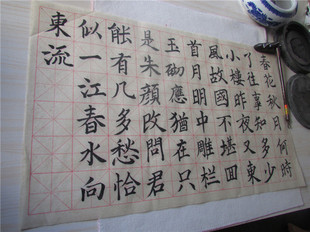 春花秋月何時
了往事知多少
小樓昨夜又東
風故國不堪回
首月明中雕栏
玉砌應猶在只
是朱顔改問君
能有几多愁恰
似一江春水向
東流